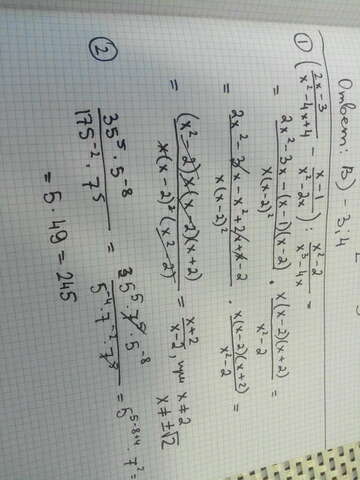 Ответ: В) -3; 4
① (2x-3/x²-4x+4 - x-1/x²-2x) : x²-2/x³-4x =
= 2x²-3x-(x-1)(x-2)/x(x-2)² · x(x-2)(x+2)/x²-2 =
= 2x²-3x-x²+2x+x-2/x(x-2)² · x(x-2)(x+2)/x²-2 =
= (x²-2)x(x-2)(x+2)/x(x-2)²(x²-2) = x+2/x-2, при x≠2
x≠±√2
② 35⁵·5⁻⁸/175⁻²·7⁵ = 35⁵·7⁵·5⁻⁸/5⁻⁴·7⁻²·7⁵ = 5⁵⁻⁸⁺⁴·7² =
= 5·49 = 245